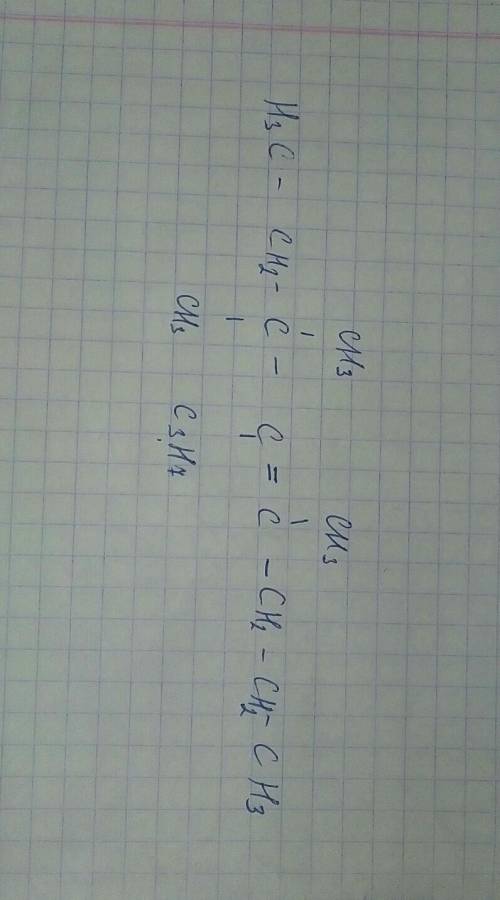 CH₃ CH₃
H₃C - CH₂ - C - C = C - CH₂ - CH₂ - CH₃
CH₃ C₃H₇